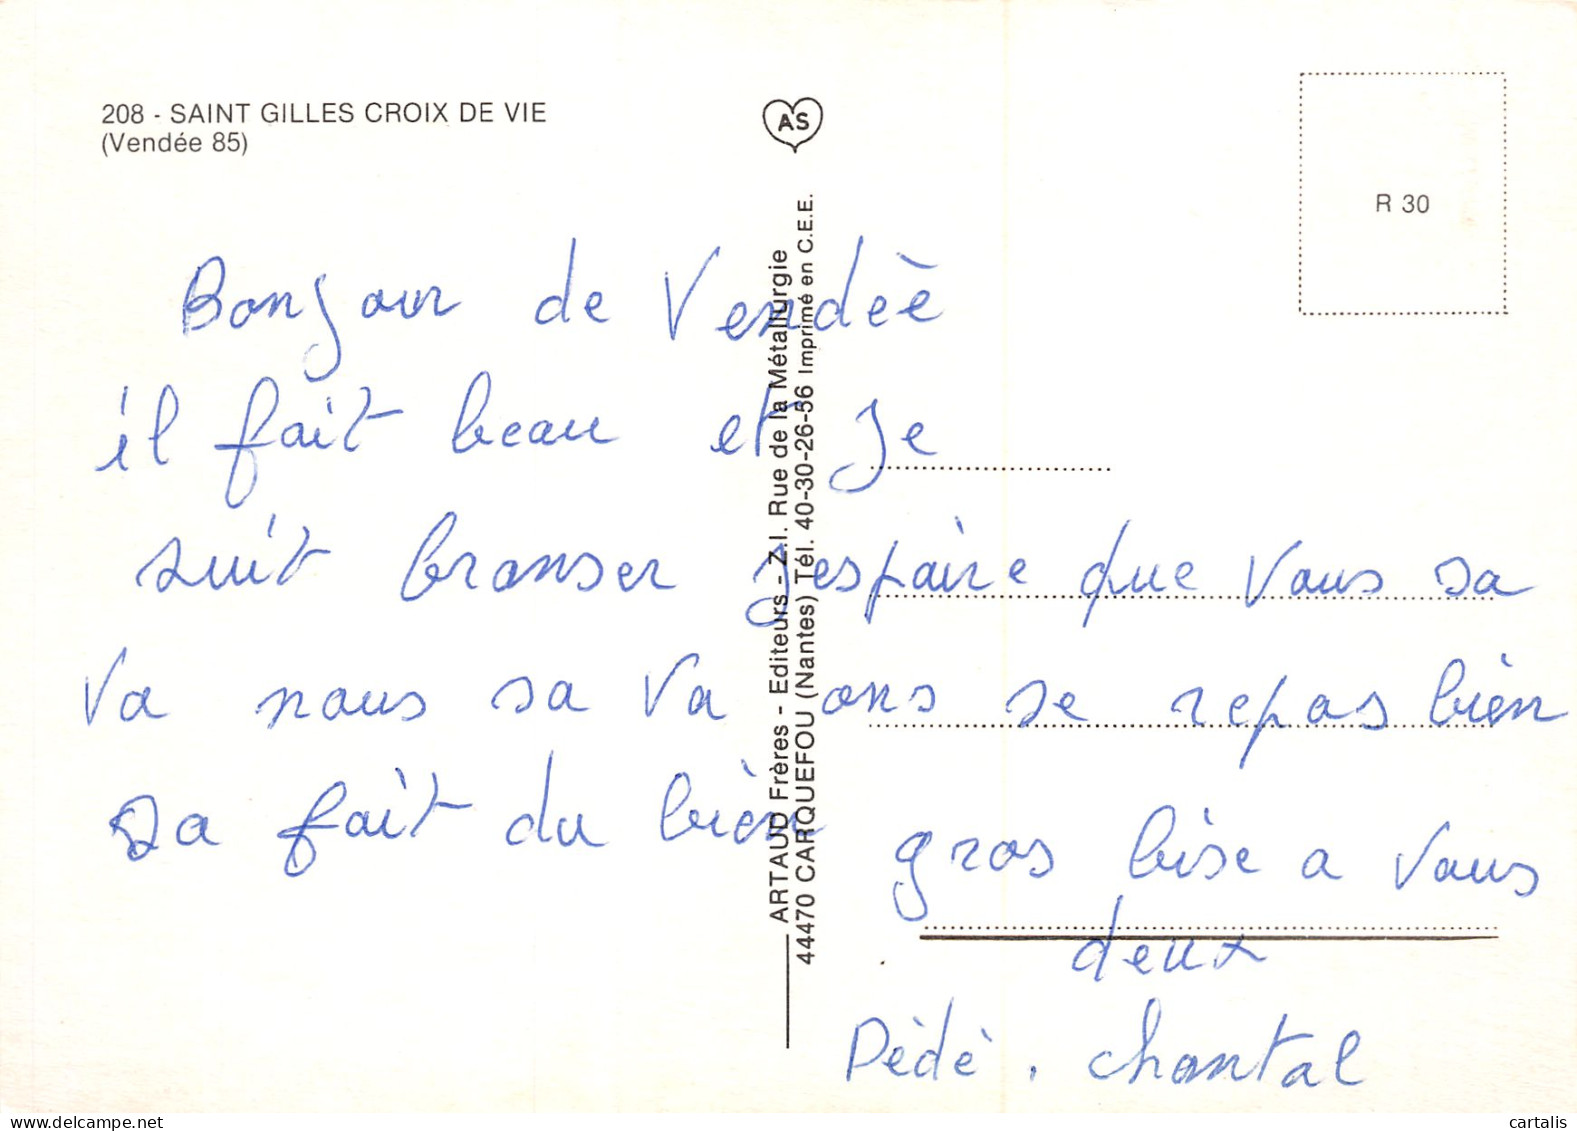 208 - SAINT GILLES CROIX DE VIE
(Vendée 85)
AS
R 30
ARTAUD Frères - Editeurs - Z.I. Rue de la Métallurgie
44470 CARQUEFOU (Nantes) Tél. 40-30-26-56 Imprimé en C.E.E.
Bonjour de Vendèè
il fait beau et je
suit bronser jespaire que vous sa
va nous sa va ons se repos bièn
sa fait du bièn
gros bise a vous
deux
Dèdè. chantal
cartalis